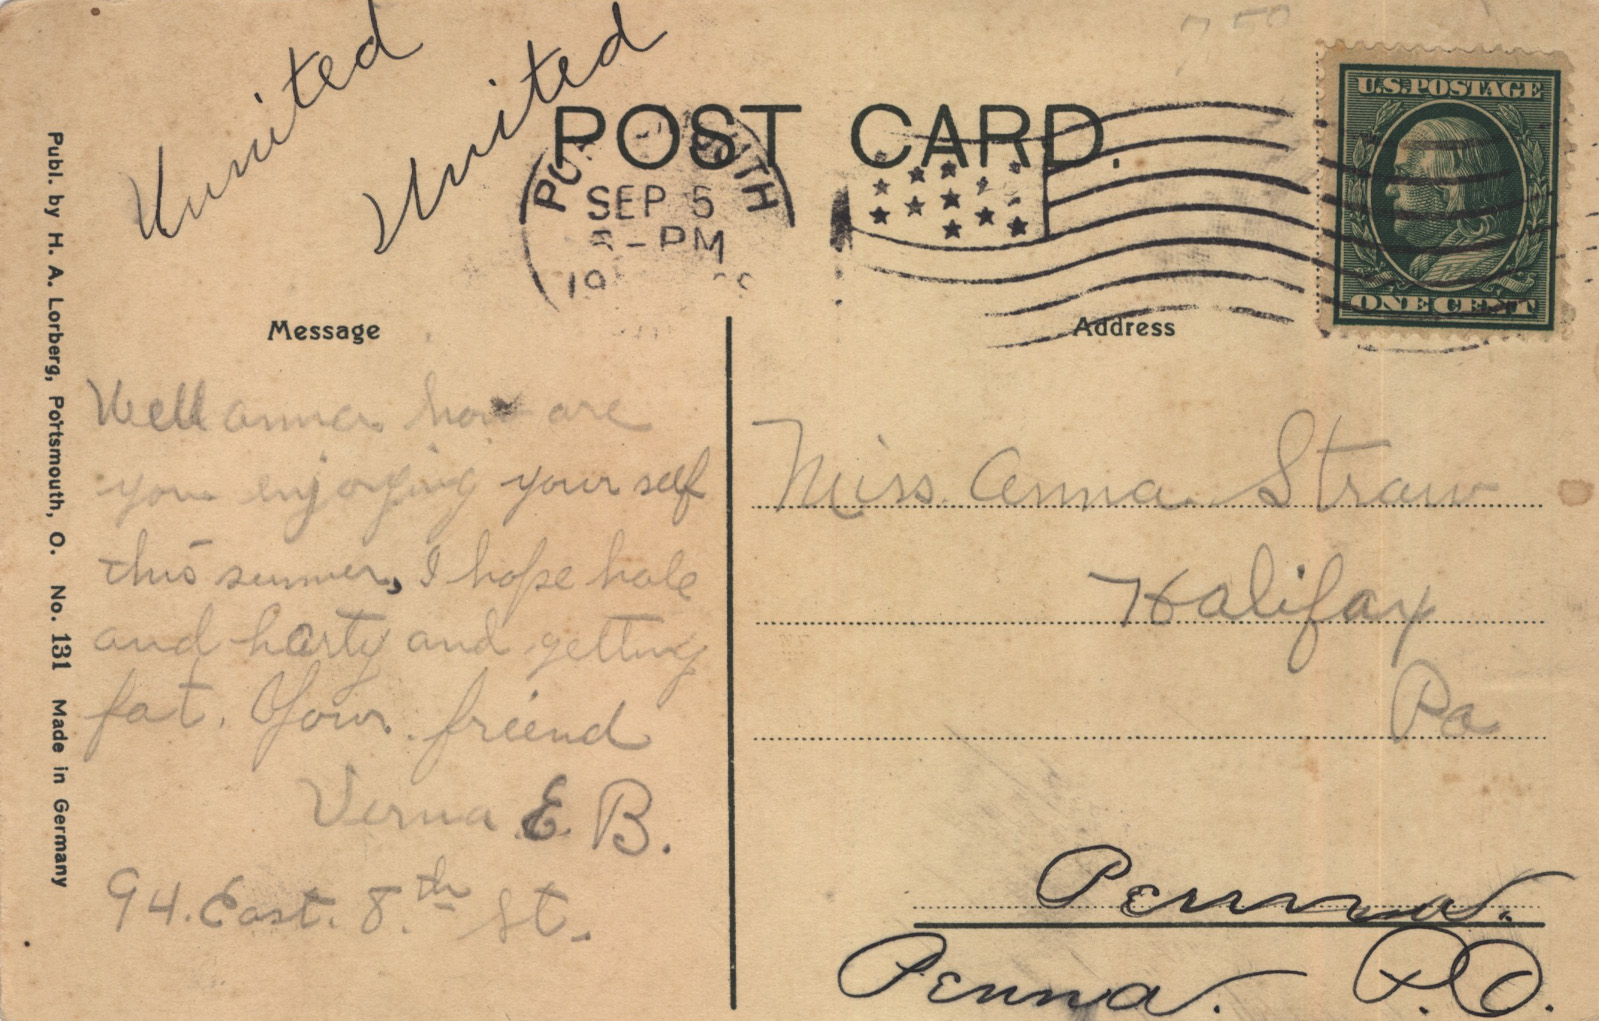 Kunited
United
POST CARD.
SEP 5
-PM
19
U.S. POSTAGE
ONE CENT
Publ. by H. A. Lorberg, Portsmouth, O. No. 131 Made in Germany
Message
Well anna how are
you enjoying your self
this summer, I hope hale
and harty and getting
fat. Your friend
Verna E. B.
94. East. 8.th St.
Address
Miss. Anna. Straw
Halifax
Pa
Penna.
Penna. P.O.